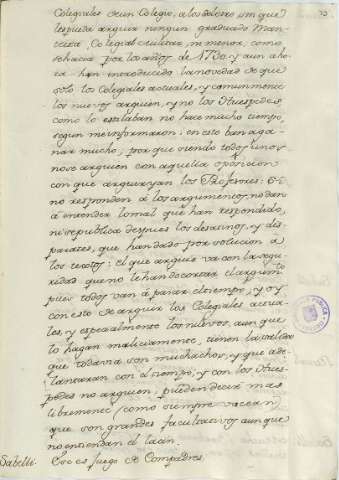 Colegiales de un Colegio, a los Doctores sin que
les pueda arguir ningun graduado Man-
teista, Colegial Militar, ni menor, como
se hacia por los años de 1730. y aun aho-
ra han introducido la novedad de que
solo los Colegiales actuales, y comunmente
los nuevos arguien, y no los Huespedes
como lo estaban no hace mucho tiempo,
segun me informaron: en esto han ga-
nar mucho, por que siendo todos unos
no se arguien con aquella oposicion
con que arguirian los Profesores: si
no responden á los argumentos, no dan
á entender lo mal que han respondido,
ni se publica despues los desatinos, y dis-
parates, que han dado por solucion á
los textos: el que arguie va con la segu-
ridad que no le han de cortar el argum.to
pues todos van á pasar el tiempo, y oy
con esto de arguir los Colegiales actua-
les, y especialmente los nuevos, aun que
lo hagan malissimamente, tienen la salida
que todavia son muchachos, y que ade-
lantaran con el tiempo, y con los Hues-
pedes no arguien, pueden decir mas
libremente (como siempre vocean)
que son grandes facultativos aunque
no entiendan el latin.
Sabelli. Eso es juego de Compadres.